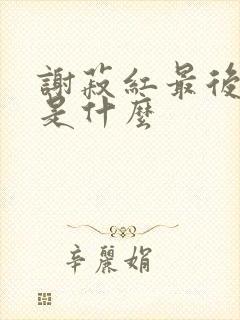 謝菽紅最後
是什麼
辛麗娟